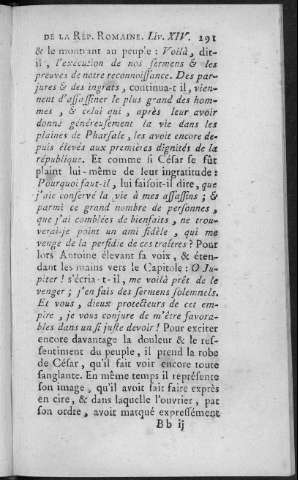 DE LA RÉP. ROMAINE. Liv. XIV. 291
& le montrant au peuple : Voilà, dit-
il, l'exécution de nos sermens & les
preuves de notre reconnoissance. Des par-
jures & des ingrats, continua-t-il, vien-
nent d'assassiner le plus grand des hom-
mes, & celui qui, après leur avoir
donné généreusement la vie dans les
plaines de Pharsale, les avoit encore de-
puis élevés aux premières dignités de la
république. Et comme si César se fût
plaint lui-même de leur ingratitude :
Pourquoi faut-il, lui faisoit-il dire, que
j'aie conservé la vie à mes assassins ; &
parmi ce grand nombre de personnes,
que j'ai comblées de bienfaits, ne trou-
verai-je point un ami fidèle, qui me
venge de la perfidie de ces traîtres ? Pour
lors Antoine élevant sa voix, & éten-
dant les mains vers le Capitole : O Ju-
piter ! s'écria-t-il, me voilà prêt de le
venger ; j'en fais des sermens solemnels.
Et vous, dieux protecteurs de cet em-
pire, je vous conjure de m'être favora-
bles dans un si juste devoir ! Pour exciter
encore davantage la douleur & le res-
sentiment du peuple, il prend la robe
de César, qu'il fait voir encore toute
sanglante. En même temps il représente
son image, qu'il avoit fait faire exprès
en cire, & dans laquelle l'ouvrier, par
son ordre, avoit marqué expressément
B b ij